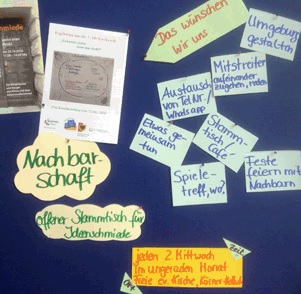 Das wünschen
wir uns
Umgebung
gestalten
Mitstreiter
aufeinander
zugehen, reden
Austausch
von Tel.Nr./
WhatsApp
Stamm-
tisch/
Café
Etwas ge-
meinsam
tun
Spiele-
treff, wo?
Feste
feiern mit
Nachbarn
Nachbar-
schaft
offener Stammtisch für
Ideenschmiede
Zeit
jeden 2. Mittwoch
im ungeraden Monat
Freie ev. Kirche,
Ort